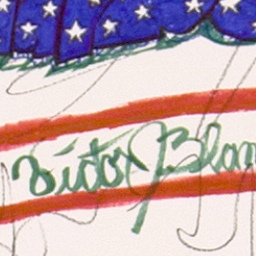 Victor J Blan